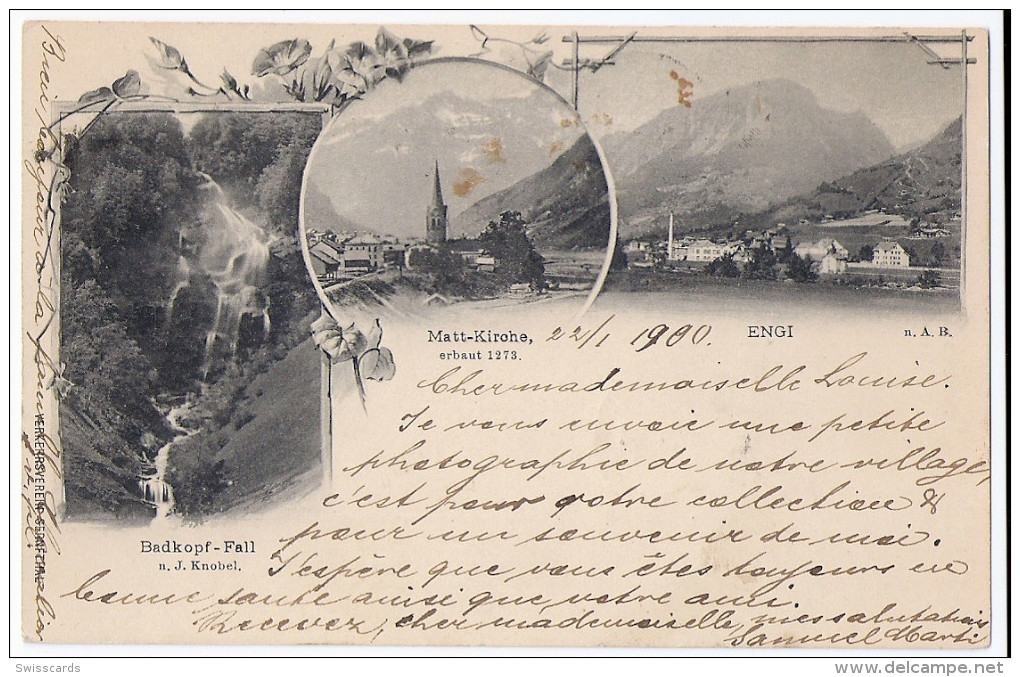 Matt-Kirche,
erbaut 1273.
22/1 1900.
ENGI
n. A. B.
Cher mademoiselle Louise.
Je vous envoie une petite
photographie de notre village,
c'est pour votre collection &
pour un souvenir de moi.
J'espère que vous êtes toujours en
bonne santé ainsi que votre ami.
Recevez, cher mademoiselle, mes salutations
Samuel Marti
Badkopf-Fall
n. J. Knobel.
VERKEHRSVEREIN SERNFTHAL
Swisscards
www.delcampe.net